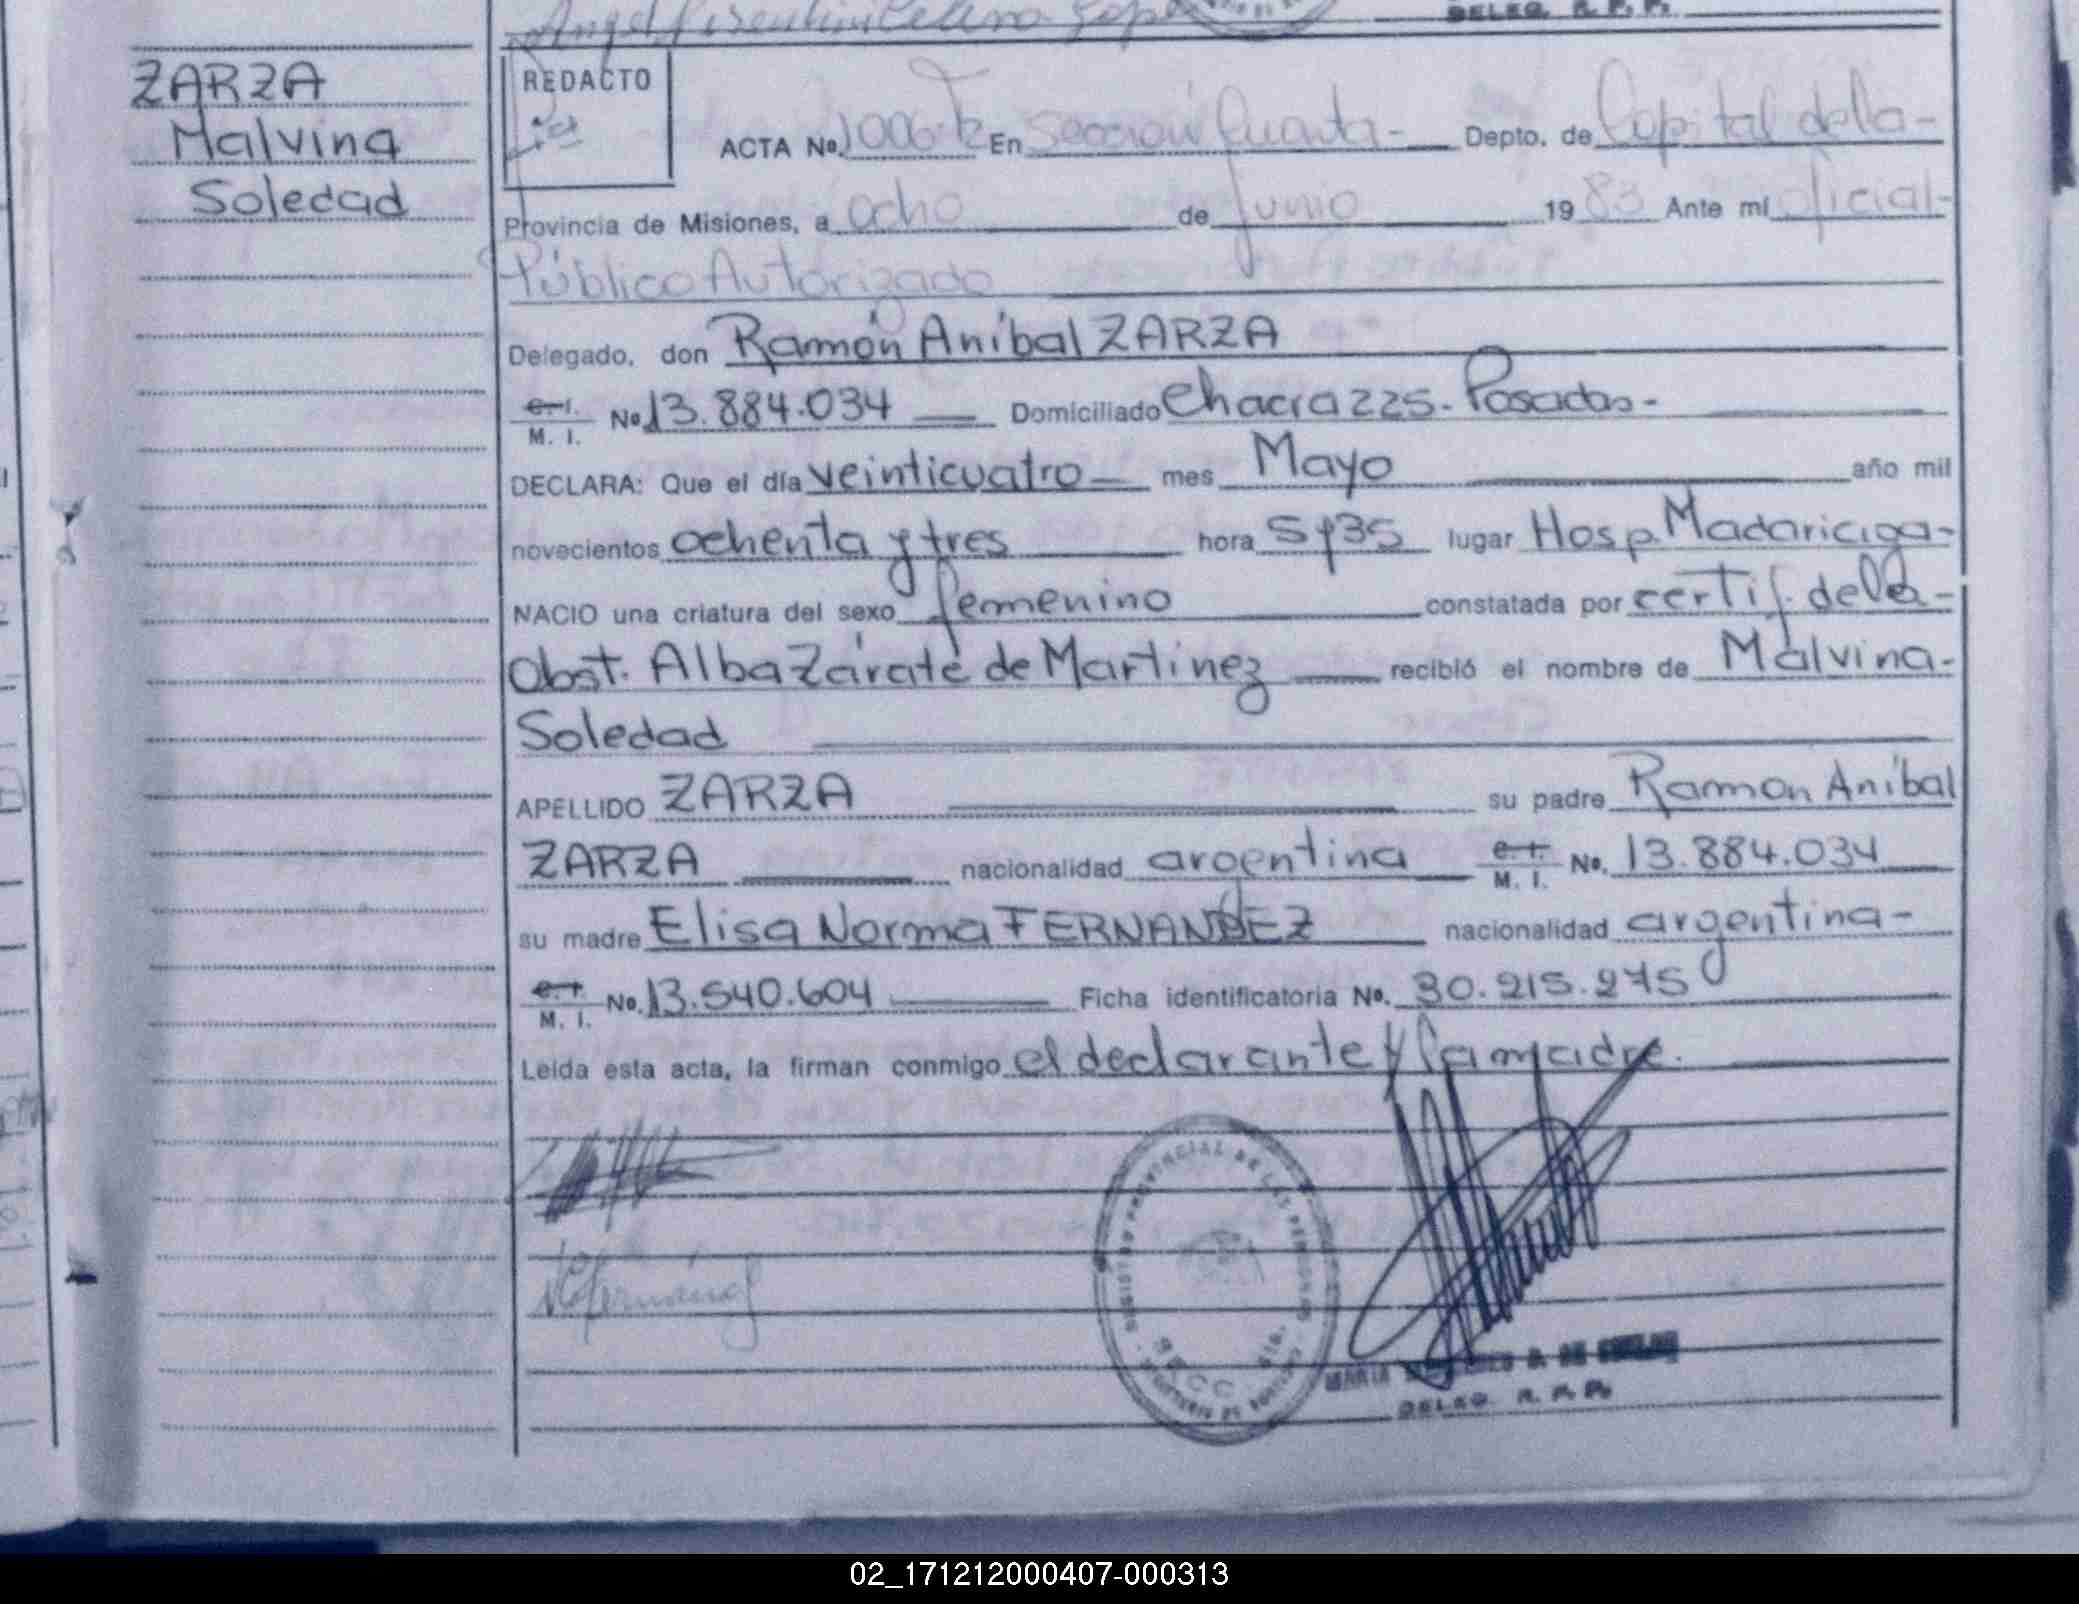 DELEG. R. P. P.
ZARZA
Malvina
Soledad
REDACTO
ACTA No. 1006 En Sección Cuarta- Depto. de Capital dela-
Provincia de Misiones, a ocho de Junio 1983 Ante mí oficial-
Público Autorizado
Delegado, don Ramón Aníbal ZARZA
C. I. M. I. No 13.884.034 Domiciliado Chacra 225- Posadas-
DECLARA: Que el día veinticuatro mes Mayo año mil
novecientos ochenta y tres hora 5y35 lugar Hosp. Madariciga-
NACIO una criatura del sexo femenino constatada por certif. dela-
Obst. Alba Zárate de Martinez recibió el nombre de Malvina-
Soledad
APELLIDO ZARZA su padre Ramon Aníbal
ZARZA nacionalidad argentina C. I. M. I. No. 13.884.034
su madre Elisa Norma FERNANDEZ nacionalidad argentina-
C. I. M. I. No. 13.540.604 Ficha identificatoria No. 30.215.275
Leida esta acta, la firman conmigo el declarante y la madre.
REGISTRO PROVINCIAL DE LAS PERSONAS
MARIA
DELEG. R. P. P.
02_171212000407-000313